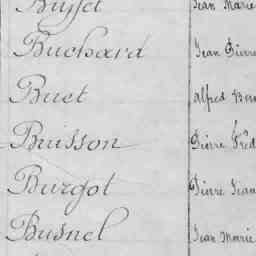 Buffet Jean Marie
Buchard Jean Pierre
Buet Alfred
Buisson Pierre Fréd
Burgot Pierre Jean
Busnel Jean Marie